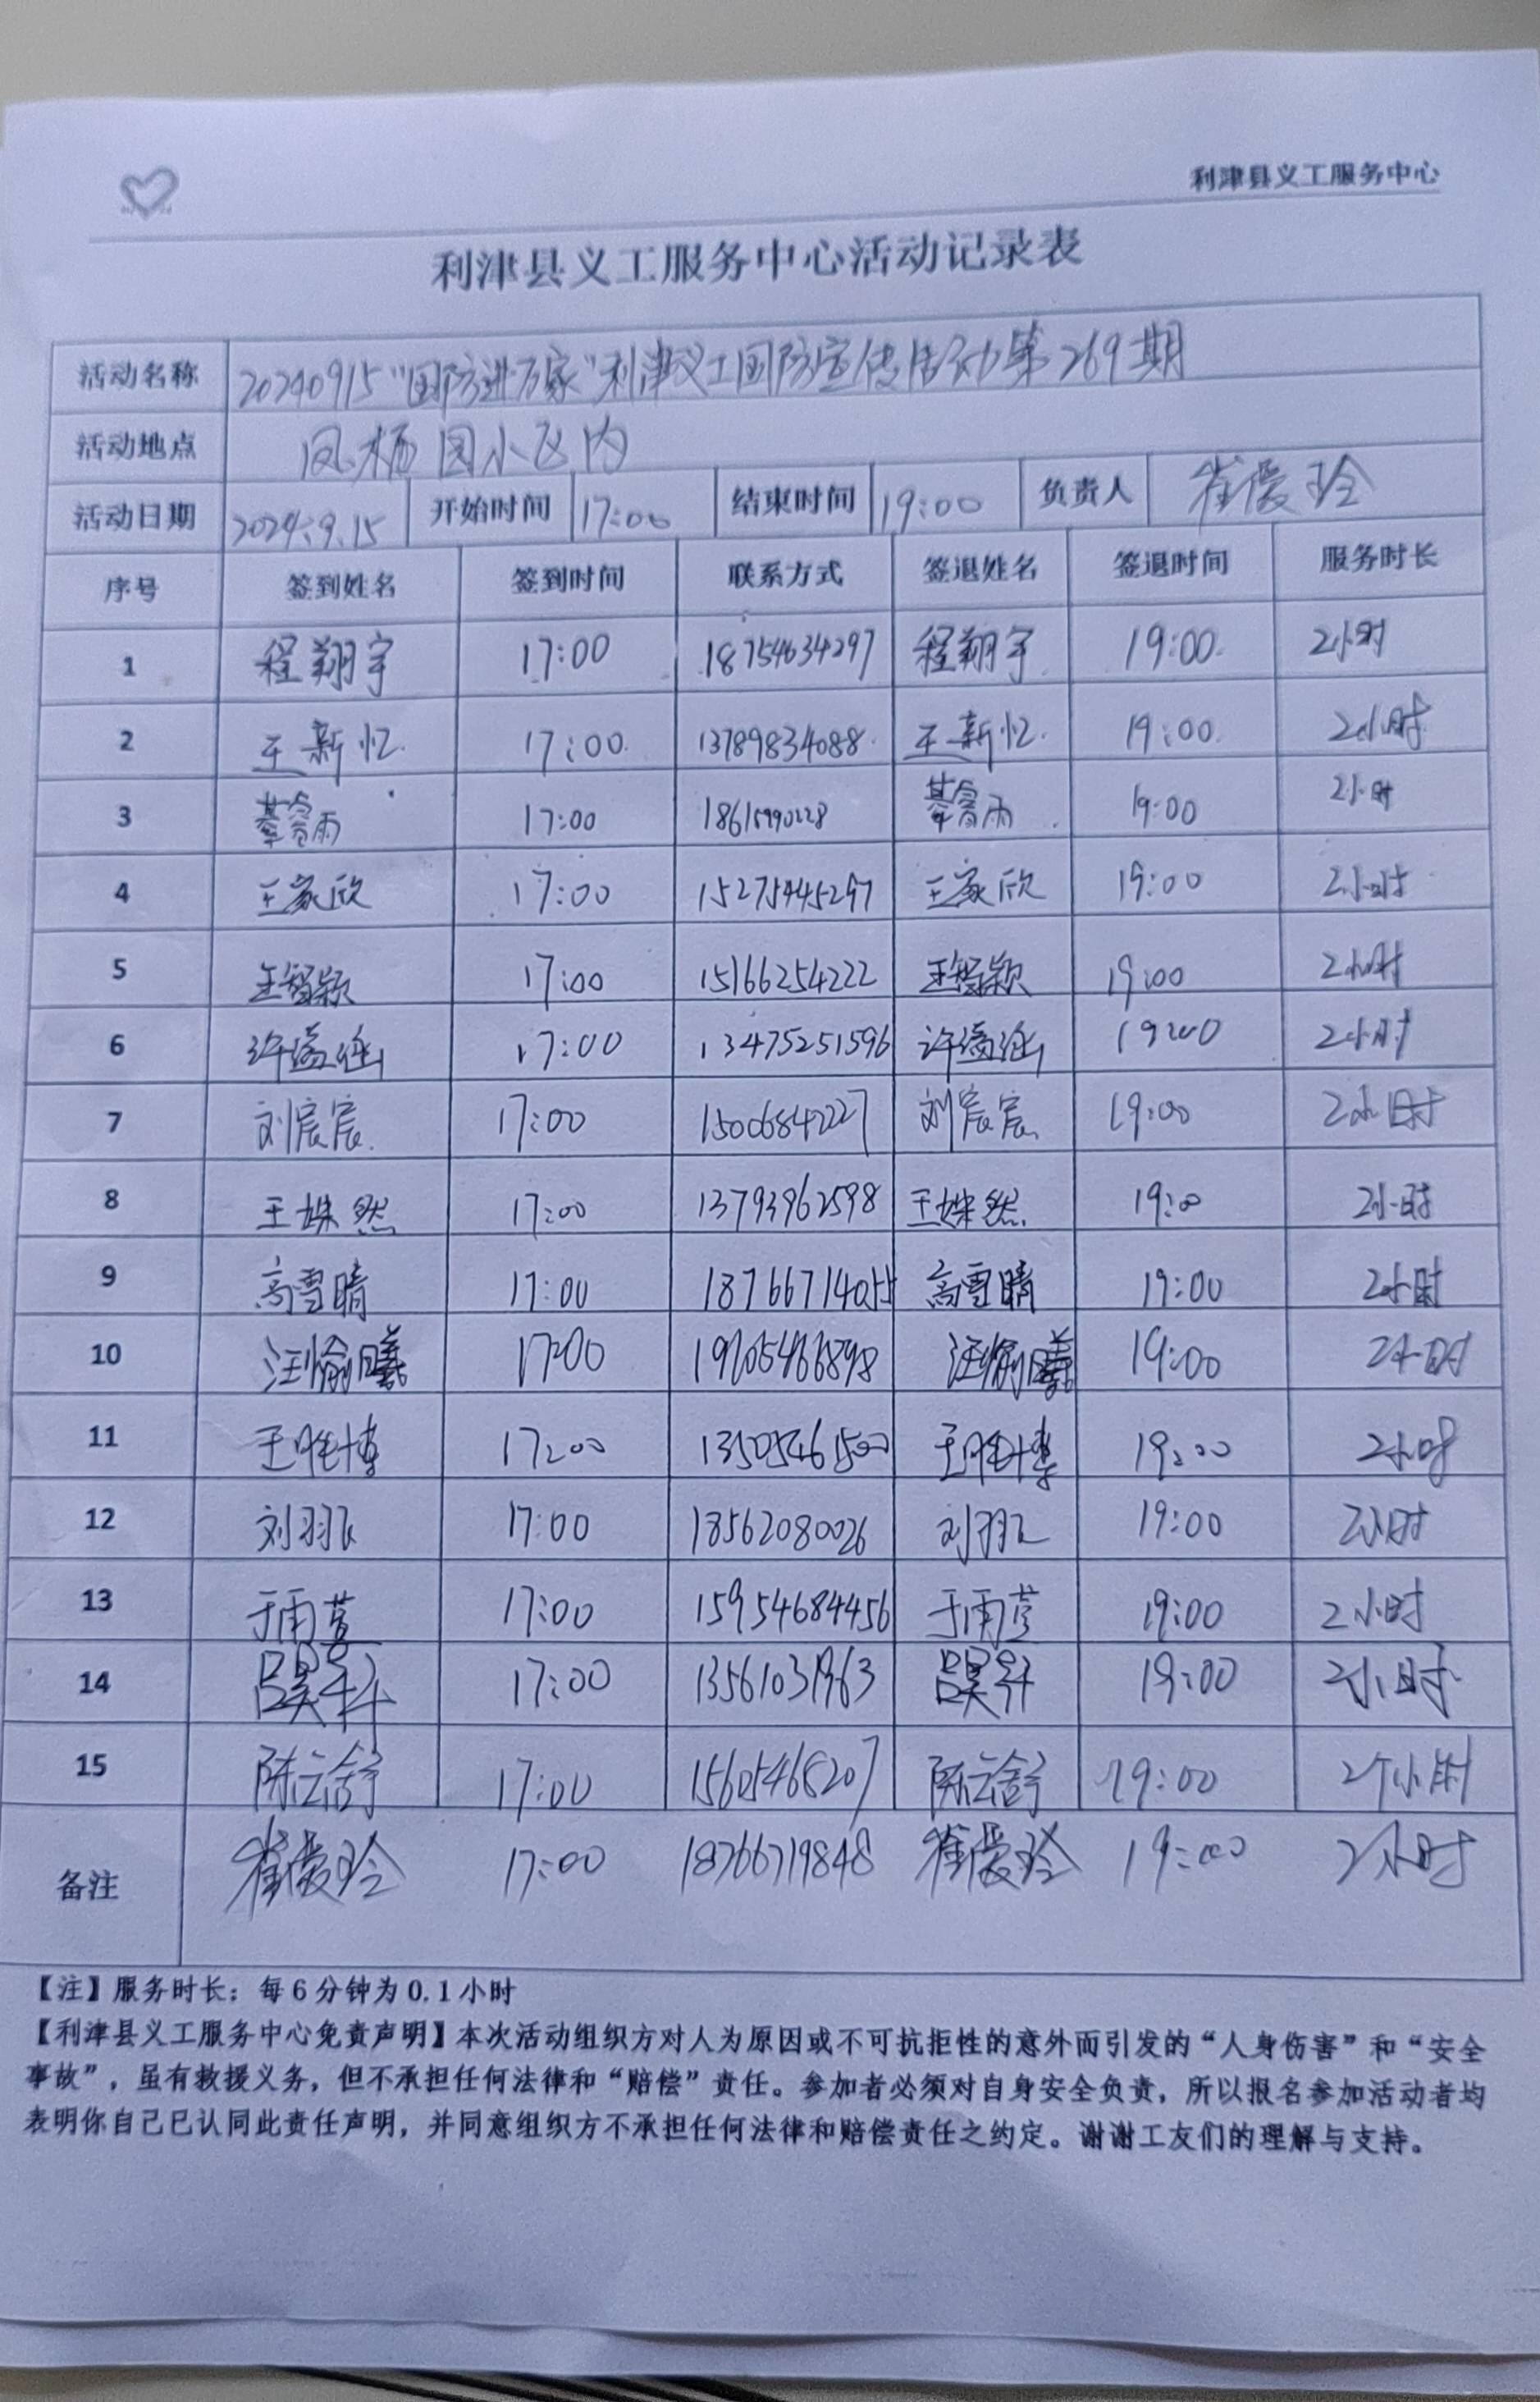 利津县义工服务中心
利津县义工服务中心活动记录表
活动名称 20240915“国防进万家”利津义工国防宣传活动第269期
活动地点 凤栖园小区内
活动日期 2024.9.15 开始时间 17:00 结束时间 19:00 负责人 崔爱玲
序号 签到姓名 签到时间 联系方式 签退姓名 签退时间 服务时长
1 程翔宇 17:00 18754634297 程翔宇 19:00 2小时
2 王新忆 17:00 13789834088 王新忆 19:00 2小时
3 綦睿雨 17:00 18615990228 綦睿雨 19:00 2小时
4 王家欣 17:00 15275445297 王家欣 19:00 2小时
5 王智颖 17:00 15166254222 王智颖 19:00 2小时
6 17:00 13475251596 19:00 2小时
7 刘宸宸 17:00 15006842227 刘宸宸 19:00 2小时
8 王姝然 17:00 13793962598 王姝然 19:00 2小时
9 高雪晴 17:00 18766714055 高雪晴 19:00 2小时
10 汪愉曦 17:00 汪愉曦 19:00 2小时
11 王胜博 17:00 13505461500 王胜博 19:00 2小时
12 17:00 18562080026 19:00 2小时
13 于雨萱 17:00 15954684456 于雨萱 19:00 2小时
14 吕昊昇 17:00 13561031963 吕昊昇 19:00 2小时
15 陈云舒 17:00 15605465207 陈云舒 19:00 2个小时
备注 崔爱玲 17:00 18766719848 崔爱玲 19:00 2小时
【注】服务时长：每6分钟为0.1小时
【利津县义工服务中心免责声明】本次活动组织方对人为原因或不可抗拒性的意外而引发的“人身伤害”和“安全
事故”，虽有救援义务，但不承担任何法律和“赔偿”责任。参加者必须对自身安全负责，所以报名参加活动者均
表明你自己已认同此责任声明，并同意组织方不承担任何法律和赔偿责任之约定。谢谢工友们的理解与支持。